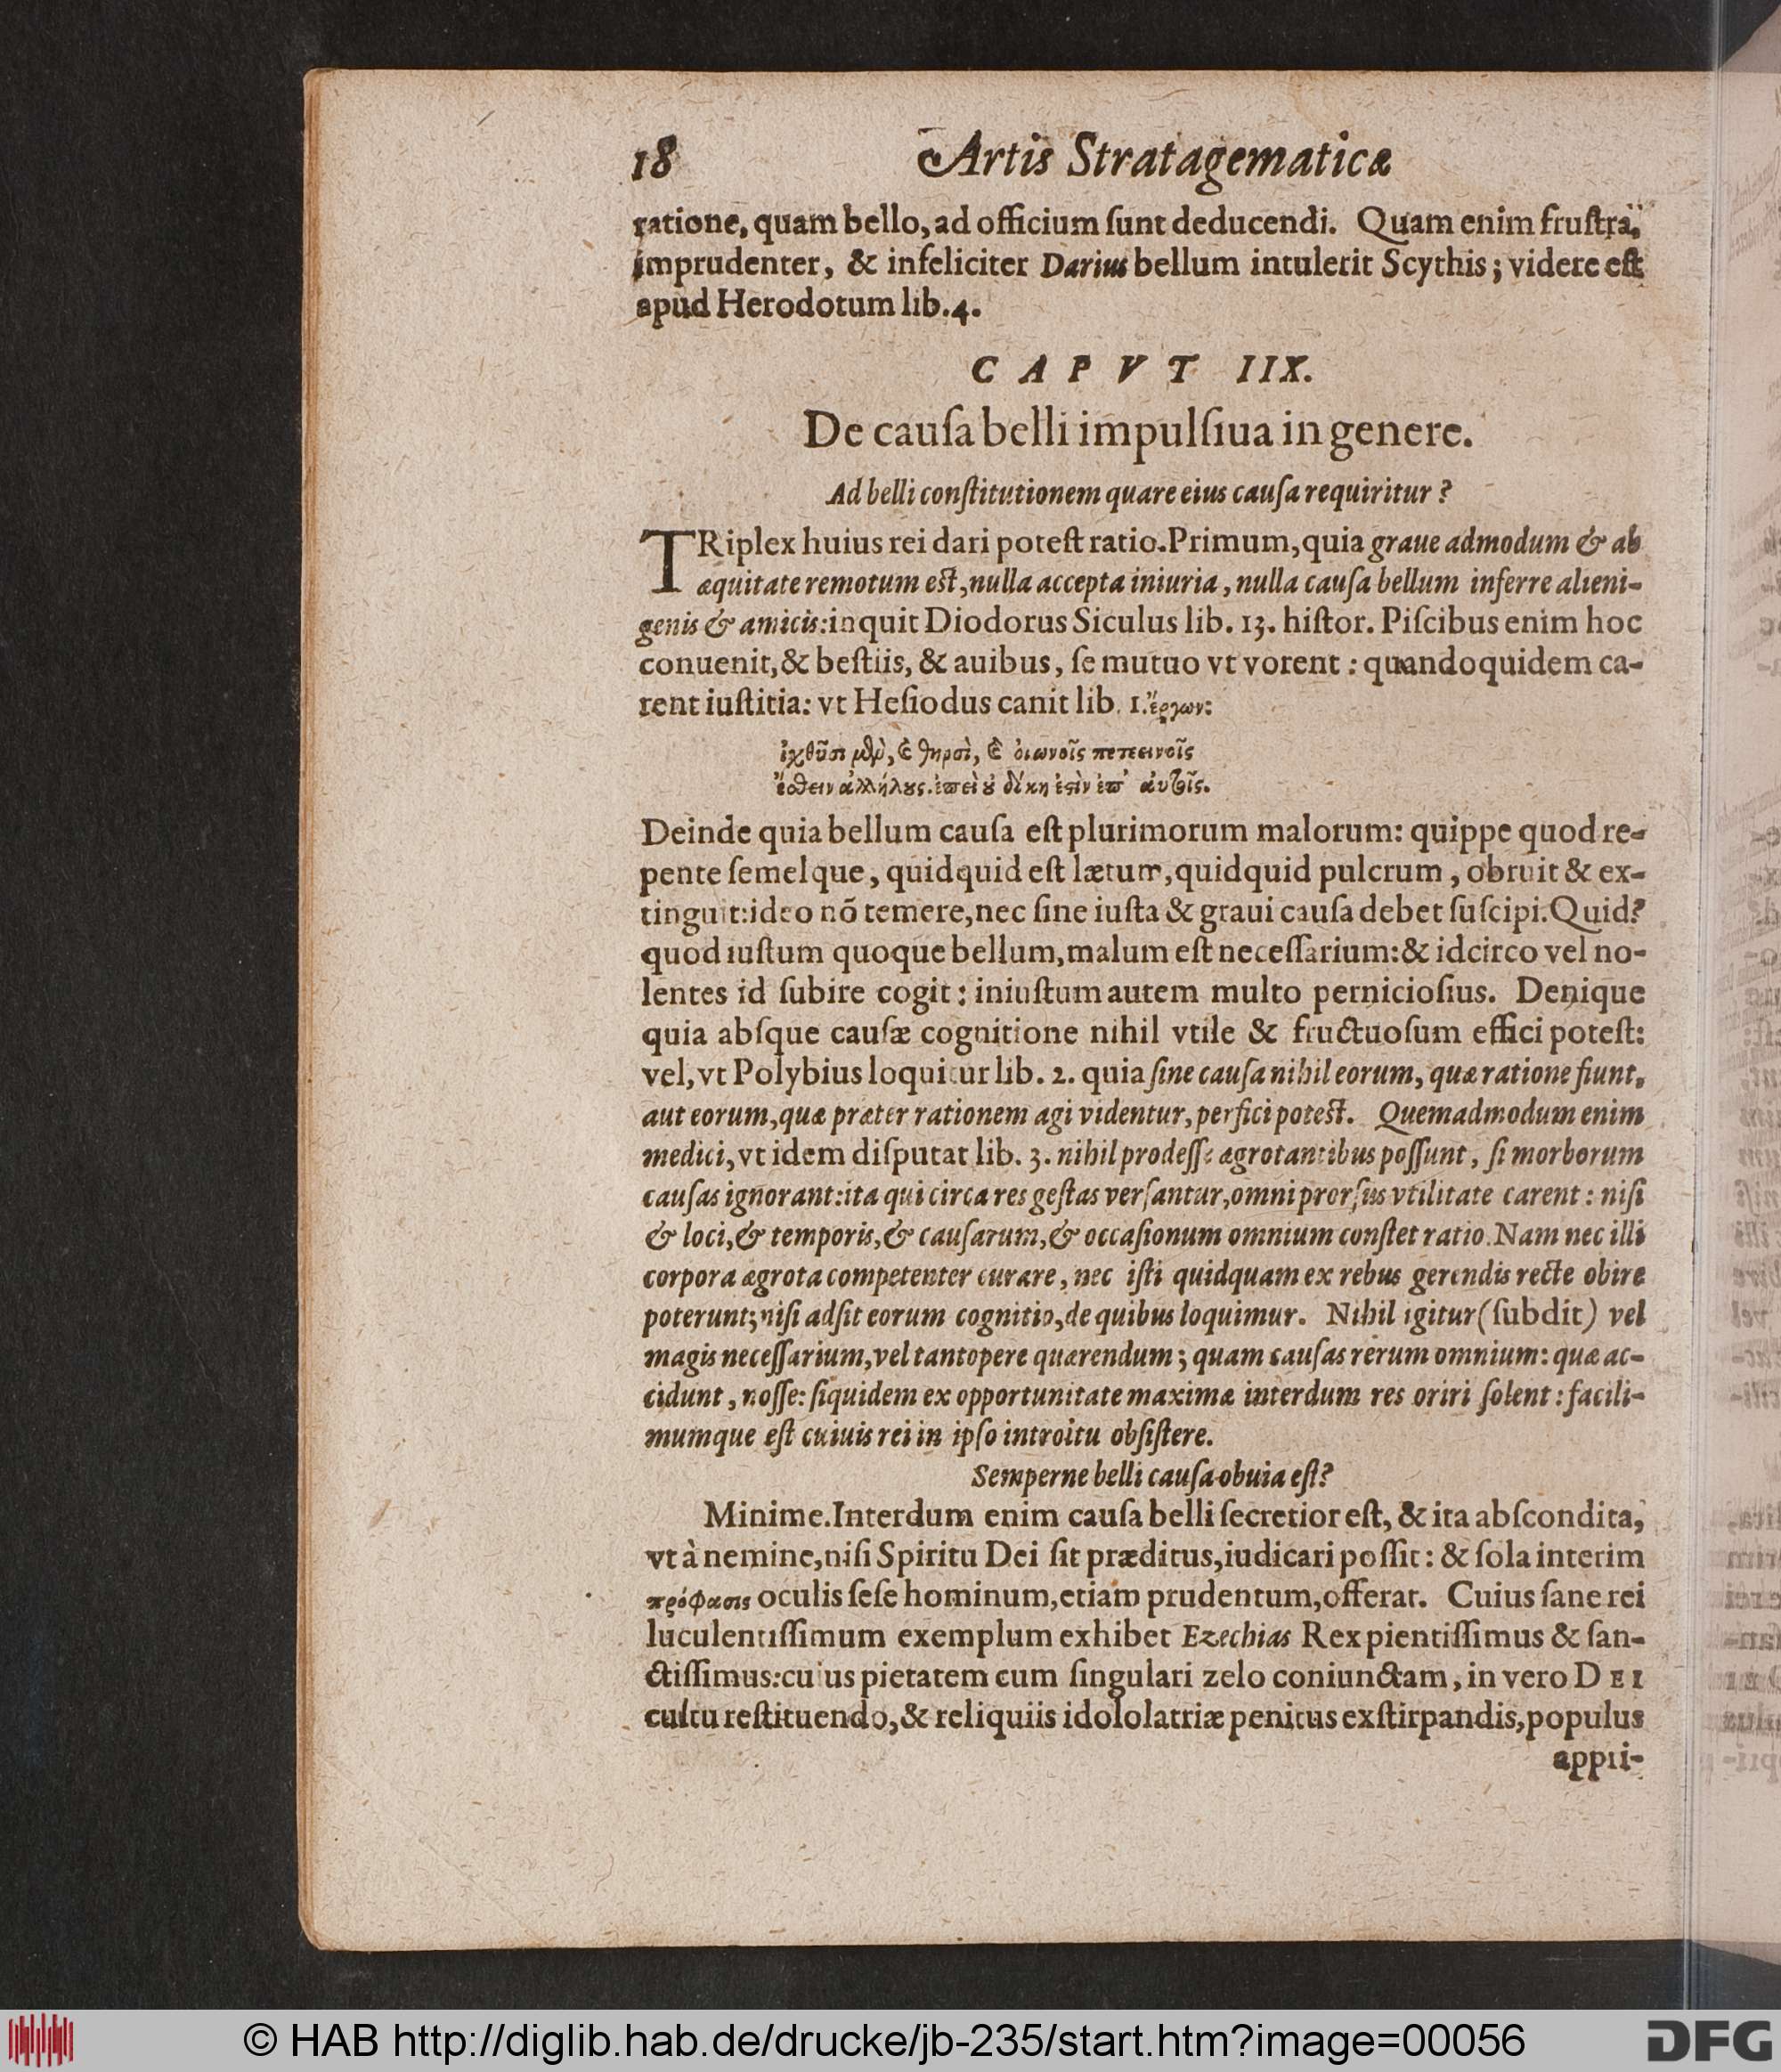 18 Artis Stratagematicæ
ratione, quam bello, ad officium ſunt deducendi. Quam enim fruſtra,
imprudenter, & infeliciter Darius bellum intulerit Scythis; videre eſt
apud Herodotum lib. 4.
CAPVT IIX.
De cauſa belli impulſiua in genere.
Ad belli conſtitutionem quare eius cauſa requiritur?
TRiplex huius rei dari poteſt ratio. Primum, quia graue admodum & ab
æquitate remotum eſt, nulla accepta iniuria, nulla cauſa bellum inferre alieni-
genis & amicis: inquit Diodorus Siculus lib. 13. hiſtor. Piſcibus enim hoc
conuenit, & beſtiis, & auibus, ſe mutuo vt vorent: quandoquidem ca-
rent iuſtitia: vt Heſiodus canit lib. 1. ἔργων:
ἰχθῦσι μὲν, καὶ θηρσὶ, καὶ ὀιωνοῖς πετεεινοῖς
ἔσθειν ἀλλήλους. ἐπεὶ οὐ δίκη ἐστὶν ἐπ' αὐτοῖς.
Deinde quia bellum cauſa eſt plurimorum malorum: quippe quod re-
pente ſemelque, quidquid eſt lætum, quidquid pulcrum, obruit & ex-
tinguit: ideo nõ temere, nec ſine iuſta & graui cauſa debet ſuſcipi. Quid?
quod iuſtum quoque bellum, malum eſt neceſſarium: & idcirco vel no-
lentes id ſubire cogit: iniuſtum autem multo pernicioſius. Denique
quia abſque cauſæ cognitione nihil vtile & fructuoſum effici poteſt:
vel, vt Polybius loquitur lib. 2. quia ſine cauſa nihil eorum, quæ ratione fiunt,
aut eorum, quæ præter rationem agi videntur, perfici poteſt. Quemadmodum enim
medici, vt idem diſputat lib. 3. nihil prodeſſe ægrotantibus poſſunt, ſi morborum
cauſas ignorant: ita qui circa res geſtas verſantur, omni prorſus vtilitate carent: niſi
& loci, & temporis, & cauſarum, & occaſionum omnium conſtet ratio. Nam nec illi
corpora ægrota competenter curare, nec iſti quidquam ex rebus gerendis recte obire
poterunt; niſi adſit eorum cognitio, de quibus loquimur. Nihil igitur (ſubdit) vel
magis neceſſarium, vel tantopere quærendum; quam cauſas rerum omnium: quæ ac-
cidunt, noſſe: ſiquidem ex opportunitate maximæ interdum res oriri ſolent: facili-
mumque eſt cuiuis rei in ipſo introitu obſiſtere.
Semperne belli cauſa obuia eſt?
Minime. Interdum enim cauſa belli ſecretior eſt, & ita abſcondita,
vt à nemine, niſi Spiritu Dei ſit præditus, iudicari poſſit: & ſola interim
πρόφασις oculis ſeſe hominum, etiam prudentum, offerat. Cuius ſane rei
luculentiſſimum exemplum exhibet Ezechias Rex pientiſſimus & ſan-
ctiſſimus: cuius pietatem cum ſingulari zelo coniunctam, in vero DEI
cultu reſtituendo, & reliquiis idololatriæ penitus exſtirpandis, populus
appri-
© HAB http://diglib.hab.de/drucke/jb-235/start.htm?image=00056
DFG